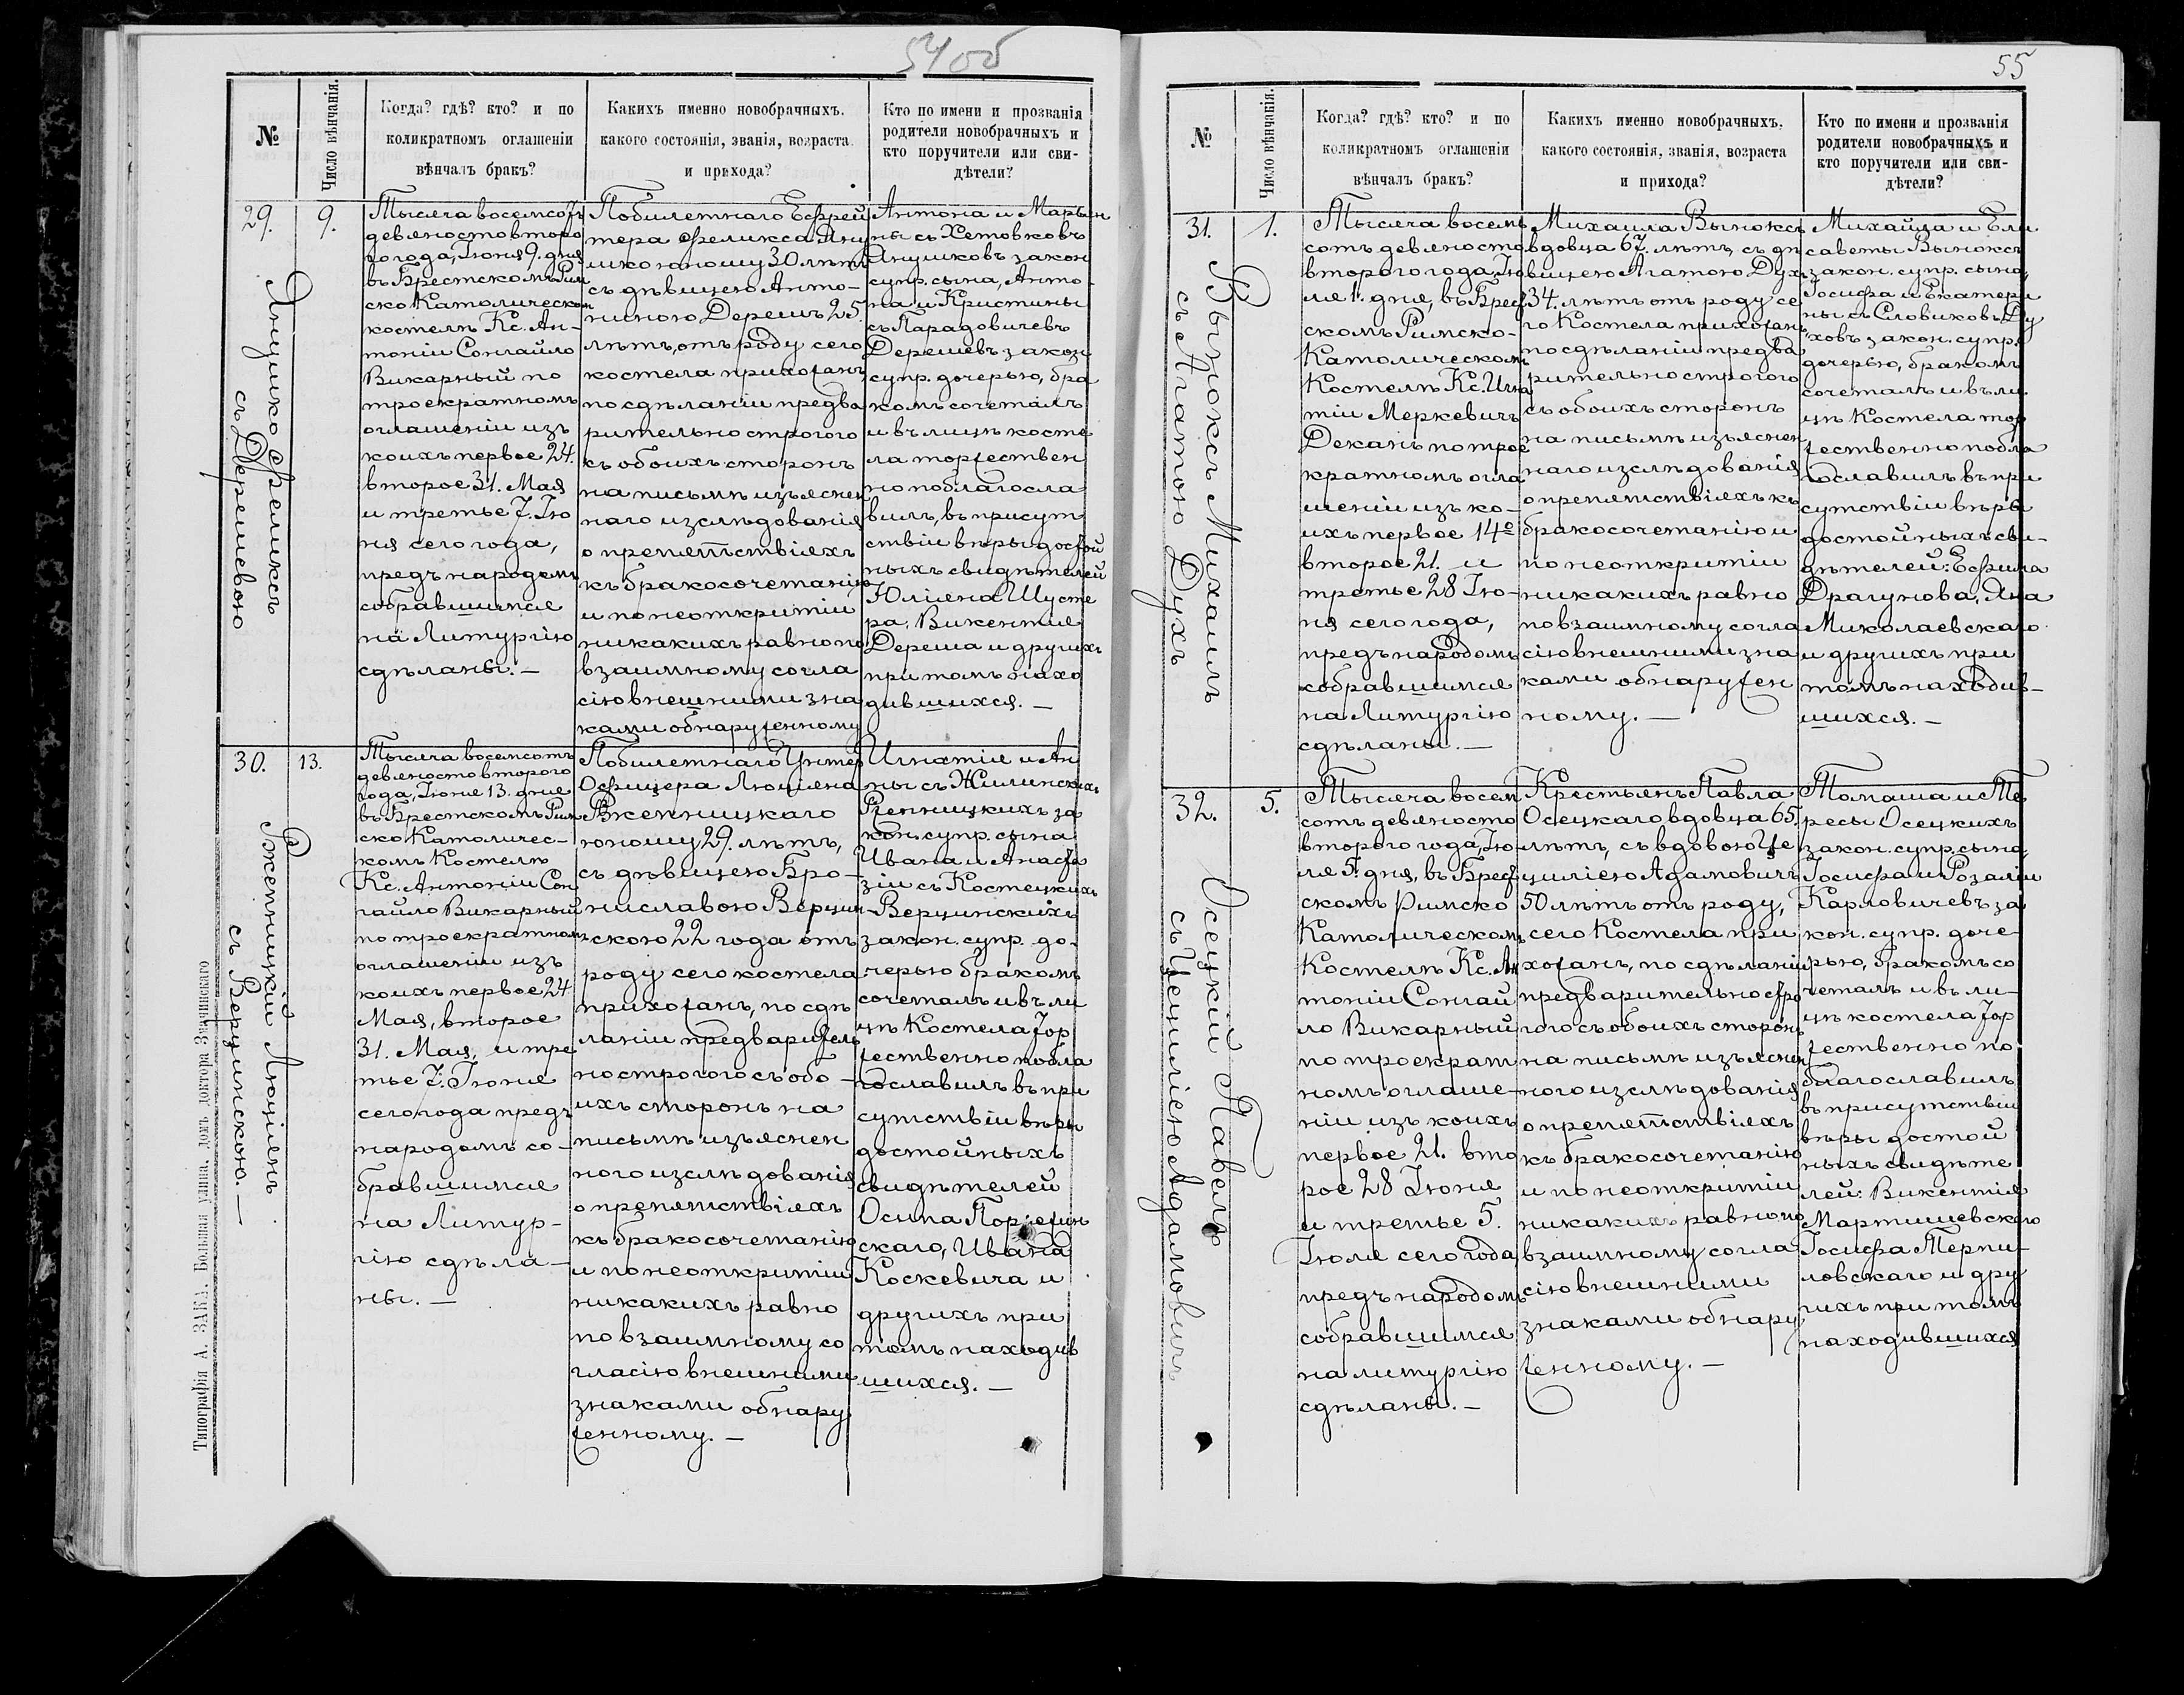 54об
№
Число вѣнчанія.
Когда? гдѣ? кто? и по
коликратномъ оглашеніи
вѣнчалъ бракъ?
Какихъ именно новобрачныхъ,
какого состоянія, званія, возраста
и прихода?
Кто по имени и прозванія
родители новобрачныхъ и
кто поручители или сви-
дѣтели?
29.
Янушко Феликсъ
съ Дерешевою
9.
Тысяча восемсотъ
девяностовторо
го года, Іюня 9. дня
въ Брестскомъ Рим
ско Католическом
костелѣ Кс. Ан-
тоніи Сонгайло
Викарный по
троекратномъ
оглашеніи изъ
коихъ первое 24.
второе 31. Мая
и третье 7. Ію
ня сего года,
предъ народомъ
собравшимся
на Литургію
сдѣланы. –
Побилетнаго Ефрей
тера Феликса Яну
шко юношу 30 лѣтъ
съ дѣвицею Анто-
ниною Дерешъ 25.
лѣтъ, отъ роду сего
костела прихожанъ,
по сдѣланіи предва
рительно строгого
съ обоихъ сторонъ
на письмѣ изъяснен
наго изслѣдованія
о препятствіяхъ
къ бракосочетанію
и по неоткрытіи
никакихъ равно по
взаимному согла
сію внешними зна
ками обнаруженному
Антона и Марьян
ны съ Хетовковъ
Янушковъ закон
супр. сына, Анто-
на и Кристины
съ Парадовичевъ
Дерешевъ закон
супр. дочерью, бра
комъ сочеталъ
и въ лицѣ косте
ла торжествен
но поблагосла
вилъ, въ присут
ствіи вѣры достой
ныхъ свидѣтелей
Юліяна Шусте
ра, Викентія
Дереша и другихъ
при томъ нахо
дившихся. –
30.
Ржепницкій Люціянъ
съ Верцинскою. –
13.
Тысяча восемсотъ
девяностовторого
года, Іюня 13. дня
въ Брестскомъ Рим
ско Католичес-
комъ Костелѣ
Кс. Антоніи Сон
гайло Викарный
по троекратномъ
оглашеніи изъ
коихъ первое 24
Мая, второе
31. Мая, и тре
тье 7. Іюня
сего года предъ
народомъ со-
бравшимся
на Литур-
гію сдѣла-
ны. –
Побилетнаго Унтер
Офицера Люціяна
Ржепницкаго
юношу 29. лѣтъ,
съ дѣвицею Бро-
ниславою Верцин-
скою 22 года отъ
роду сего костела
прихожанъ, по сдѣ
ланіи предваритель
но строгого съ обо-
ихъ сторонъ на
письмѣ изъяснен
ного изслѣдованія
о препятствіяхъ
къ бракосочетанію
и по неоткрытіи
никакихъ равно
по взаимному со
гласію внешними
знаками обнару
женному. –
Игнатія и Ан
ны съ Жилинскихъ
Рженницкихъ за
кон. супр. сына
Ивана и Анаста
зіи съ Костецкихъ
Верцинскихъ
закон. супр. до-
черью бракомъ
сочеталъ и въ ли
цѣ Костела тор
жественно побла
гославилъ въ при
сутствіи вѣры
достойныхъ
свидѣтелей
Осипа
скаго, Ивана
Коскевича и
другихъ при
томъ находив
шихся. –
Типографія А. ЗАКА. Большая улица, домъ доктора Значинскаго
55
№
Число вѣнчанія.
Когда? гдѣ? кто? и по
коликратномъ оглашеніи
вѣнчалъ бракъ?
Какихъ именно новобрачныхъ,
какого состоянія, званія, возраста
и прихода?
Кто по имени и прозванія
родители новобрачныхъ и
кто поручители или сви-
дѣтели?
31.
Вынюксъ Михаилъ
съ Агатою Духъ
1.
Тысяча восемь
сотъ девяносто
второго года, Ію
ля 1. дня, въ Брест
скомъ Римско-
Католическомъ
Костелѣ Кс. Игна
тіи Меркевичъ
Деканъ по трое
кратномъ огла
шеніи изъ ко-
ихъ первое 14е
второе 21. и
третье 28 Ію-
ня сего года,
предъ народомъ
собравшимся
на Литургію
сдѣланы. –
Михаила Вынюксъ
вдовца 67. лѣтъ, съ дѣ
вицею Агатою Духъ
34. лѣтъ отъ роду се
го Костела прихожанъ,
по сдѣланіи предва
рительно строгого
съ обоихъ сторонъ
на письмѣ изъяснен
наго изслѣдованія
о препятствіяхъ къ
бракосочетанію и
по неоткрытіи
никакихъ равно
по взаимному согла
сію внешними зна
ками обнаружен
ному. –
Михайла и Ели
саветы Вынюксъ
закон. супр. сына,
Іосифа и Екатери
ны съ Словиковъ Ду
ховъ закон. супр.
дочерью, бракомъ
сочеталъ и въ ли
цѣ Костела тор
жественно побла
гославилъ въ при
сутствіи вѣры
достойныхъ сви-
дѣтелей: Ефима
Драгунова, Яна
Миколаевскаго
и другихъ при
томъ находив-
шихся. –
32.
Осецкій Павелъ
съ Цециліею Адамовичъ
5.
Тысяча восем
сотъ девяносто
второго года, Ію-
ля 5. дня, въ Брест
скомъ Римско
Католическомъ
Костелѣ Кс. Ан
тоніи Сонгай
ло Викарный
по троекрат
номъ оглаше-
ніи изъ коихъ
первое 21. вто
рое 28 Іюня
и третье 5.
Іюля сего года,
предъ народомъ
собравшимся
на литургію
сдѣланы. –
Крестьянъ Павла
Осецкаго вдовца 65.
лѣтъ, съ вдовою Це
циліею Адамовичъ
50 лѣтъ отъ роду,
сего Костела при
хожанъ, по сдѣланіи
предварительно стро
гого съ обоихъ сторонъ
на письмѣ изъяснен
ного изслѣдованія
о препятствіяхъ
къ бракосочетанію
и по неоткрытіи
никакихъ равно по
взаимному согла
сію внешними
знаками обнару
женному. –
Томаша и Те
ресы Осецкихъ
закон. супр. сына,
Іосифа и Розаліи
Карловичевъ за
кон. супр. доче-
рью, бракомъ со
четалъ и въ ли-
цѣ костела тор
жественно по
благославилъ
въ присутствіи
вѣры достой
ныхъ свидѣте
лей: Викентія
Мартишевскаго
Іосифа Терпи-
ловскаго и дру
гихъ при томъ
находившихся